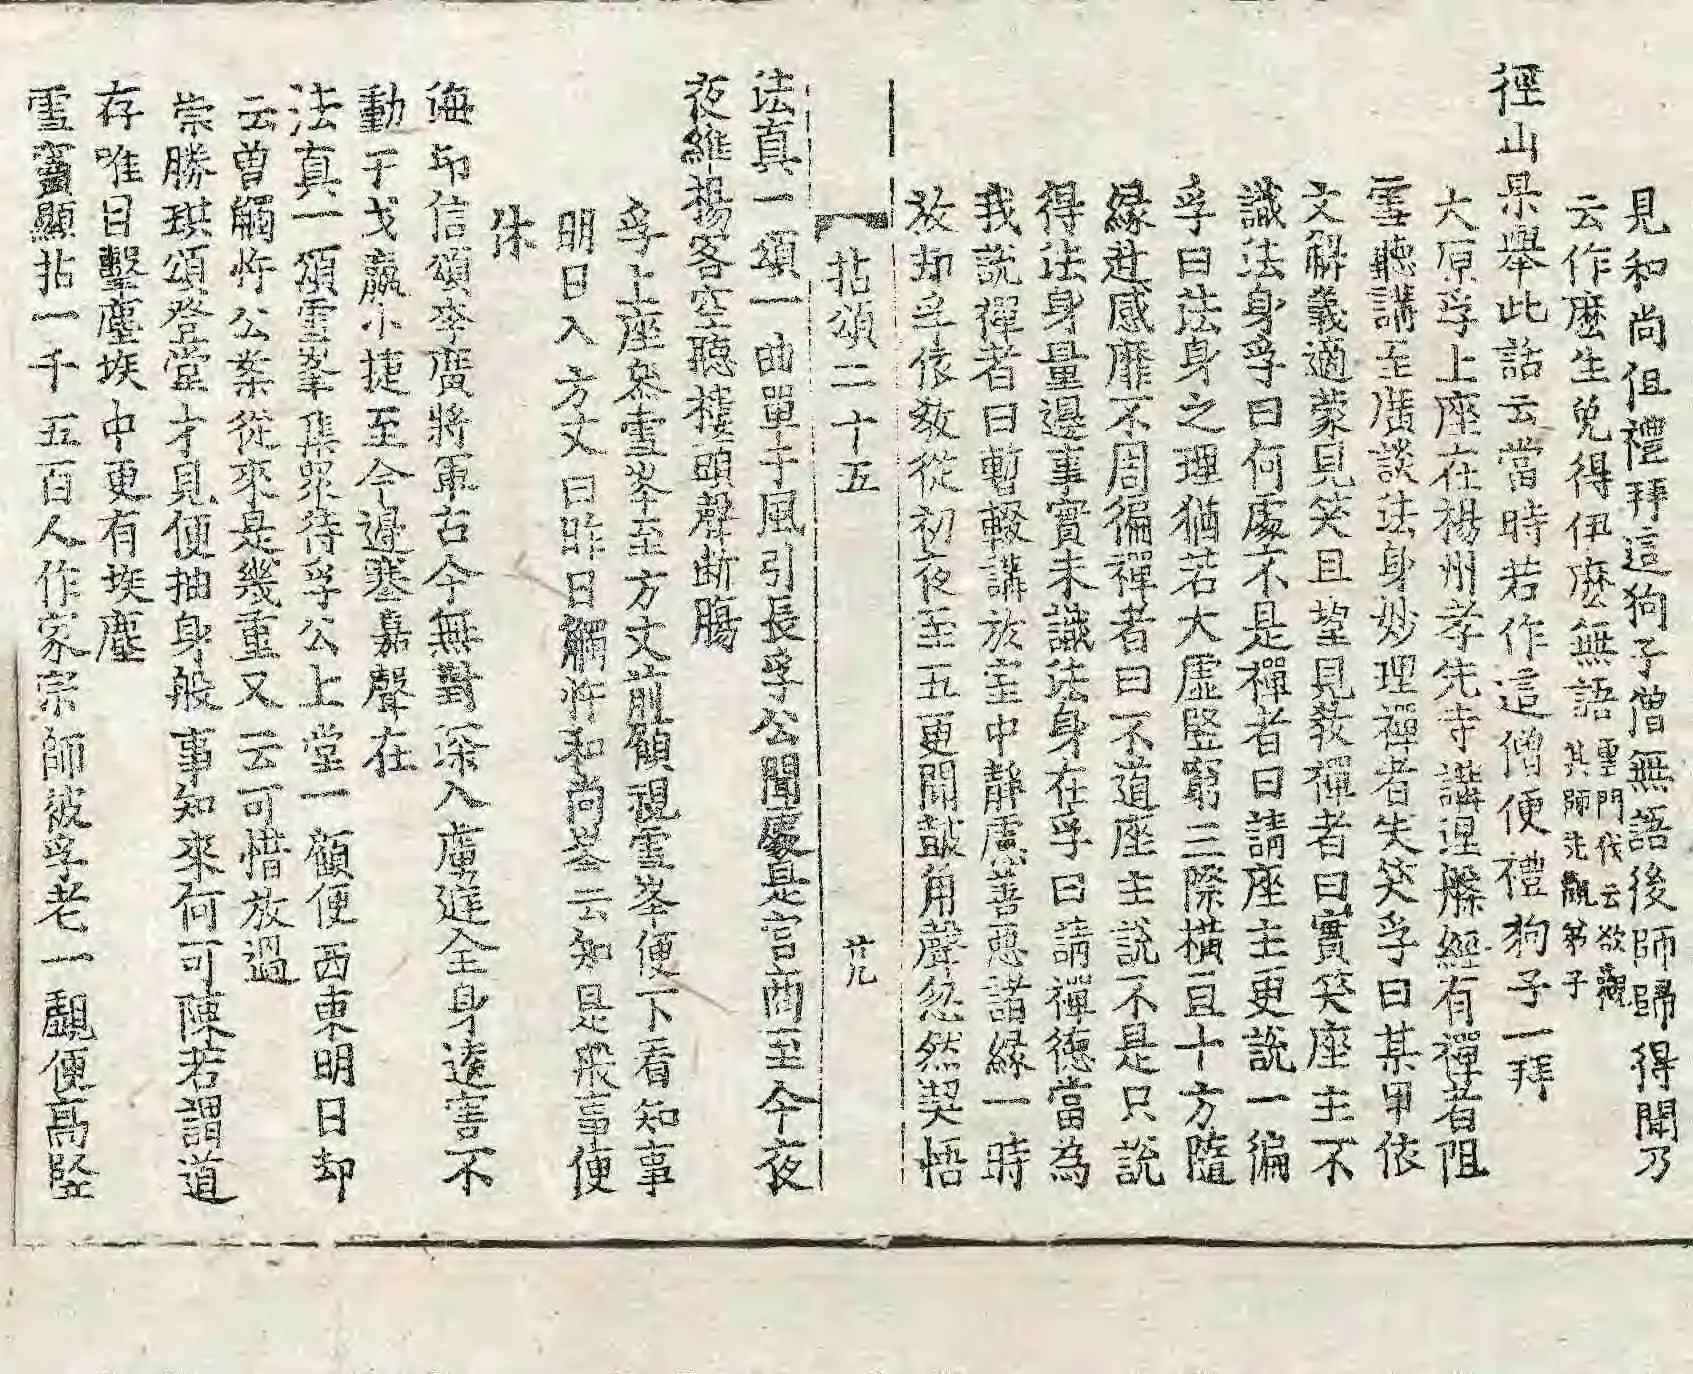 見和尚但禮拜這狗子僧無語後師歸得聞乃
云作麽生免得伊麽無語雲門代云欲觀其師先觀弟子
徑山杲舉此話云當時若作這僧便禮狗子一拜
大原孚上座在楊州孝先寺講涅槃經有禪者阻
雪聽講至廣談法身妙理禪者失笑孚曰某甲依
文觧義適蒙見笑且望見敎禪者曰實笑座主不
識法身孚曰何處不是禪者曰請座主更說一徧
孚曰法身之理猶若大虛竪窮三際橫亘十方隨
緣赴感靡不周徧禪者曰不道座主說不是只說
得法身量邊事實未識法身在孚曰請禪德當為
我說禪者曰暫輟講於室中靜慮善惡諸緣一時
放却孚依敎從初夜至五更聞鼓角聲忽然契悟
拈頌二十五 廿九
法真一頌一曲單于風引長孚公聞處是宮商至今夜
夜維楊客空聽樓頭聲断腸
孚上座叅雪峯至方丈前顧視雪峯便下看知事
明日入方丈曰昨日觸忤和尚峯云知是般事便
休
海印信頌李廣將軍古今無對深入虜進全身逺害不
動干戈贏小捷至今邊塞嘉聲在
法真一頌雪峯集眾待孚公上堂一顧便西東明日却
云曽觸忤公案從來是幾重又云可惜放過
崇勝珙頌登堂才見便抽身般事知來何可陳若謂道
存唯目擊塵埃中更有埃塵
雪竇顯拈一千五百人作家宗師被孚老一覷便高竪